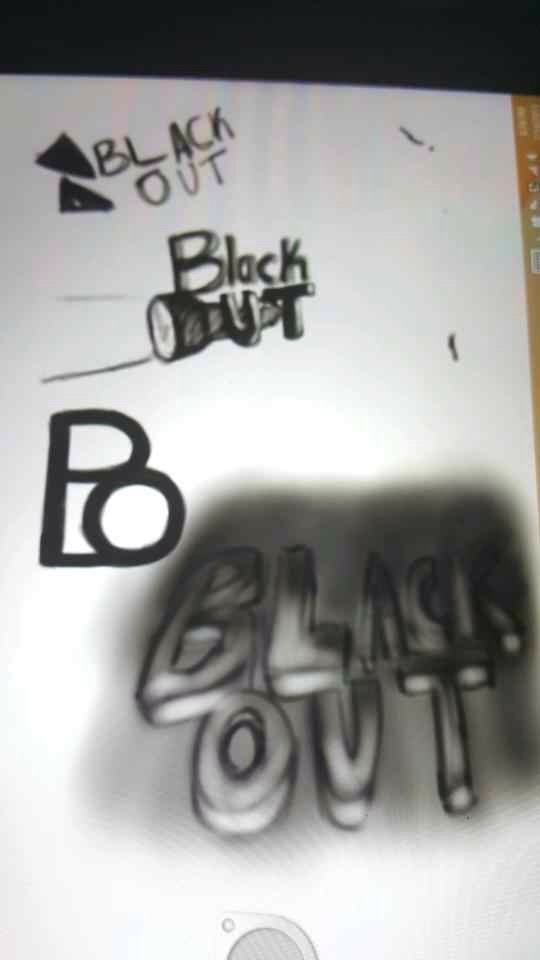 BLACK
OUT
Black
OUT
BO
BLACK
OUT